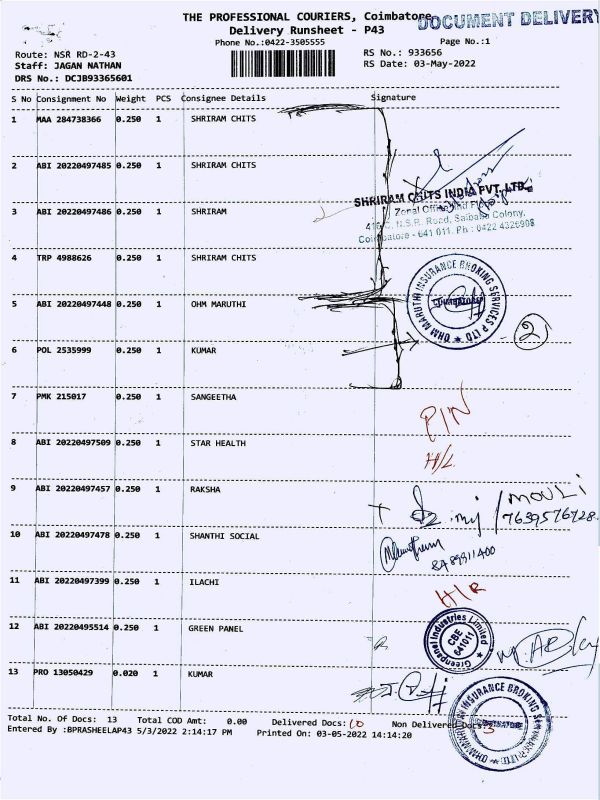 THE PROFESSIONAL COURIERS, Coimbatore
DOCUMENT DELIVERY
Delivery Runsheet - P43
Phone No.:0422-3505555
Page No.:1
Route: NSR RD-2-43
RS No.: 933656
Staff: JAGAN NATHAN
RS Date: 03-May-2022
DRS No.: DCJB93365601
S No Consignment No Weight PCS Consignee Details Signature
1 MAA 284738366 0.250 1 SHRIRAM CHITS
2 ABI 20220497485 0.250 1 SHRIRAM CHITS
SHRIRAM CHITS INDIA PVT. LTD.
3 ABI 20220497486 0.250 1 SHRIRAM
Zonal Office
N.S.R. Road, Saibaba Colony,
Coimbatore - 641 011. Ph : 0422 4326908
4 TRP 4988626 0.250 1 SHRIRAM CHITS
OHM MARUTHI INSURANCE BROKING SERVICES P LTD
COIMBATORE
5 ABI 20220497448 0.250 1 OHM MARUTHI
2
6 POL 2535999 0.250 1 KUMAR
7 PMK 215017 0.250 1 SANGEETHA
P/N
8 ABI 20220497509 0.250 1 STAR HEALTH
H/L
9 ABI 20220497457 0.250 1 RAKSHA
MOULI
7639576728
10 ABI 20220497478 0.250 1 SHANTHI SOCIAL
11 ABI 20220497399 0.250 1 ILACHI
H/R
12 ABI 20220495514 0.250 1 GREEN PANEL
Greenpanel Industries Limited
CBE
641011
13 PRO 13050429 0.020 1 KUMAR
OHM MARUTHI INSURANCE BROKING SERVICES P LTD
Total No. Of Docs: 13 Total COD Amt: 0.00 Delivered Docs: 10 Non Delivered Docs: 3
Entered By :BPRASHEELAP43 5/3/2022 2:14:17 PM Printed On: 03-05-2022 14:14:20